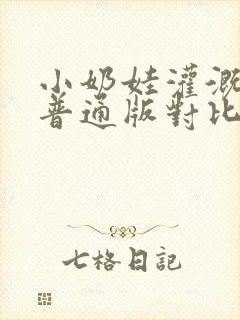 小奶娃灌溉
普通版對比
七格日記